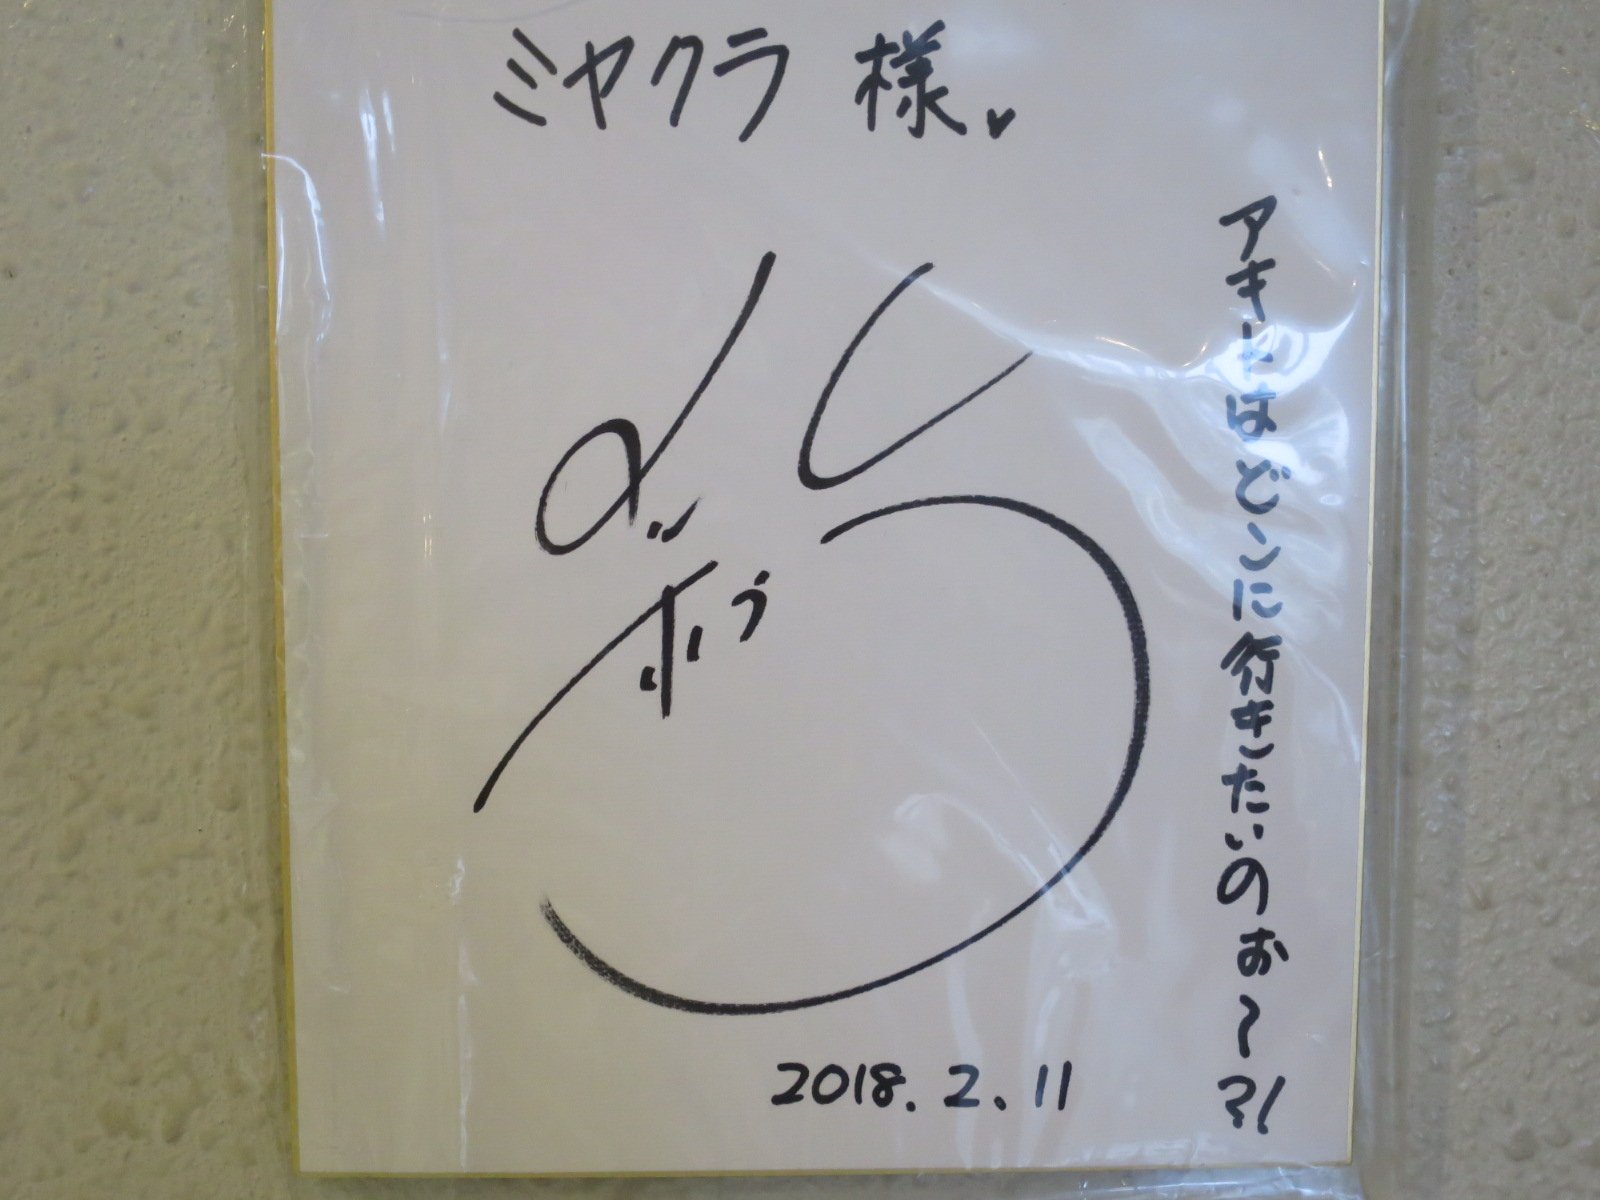 ミヤクラ 様。
アキトはどンに行きたいのぉ〜?!
2018.2.11